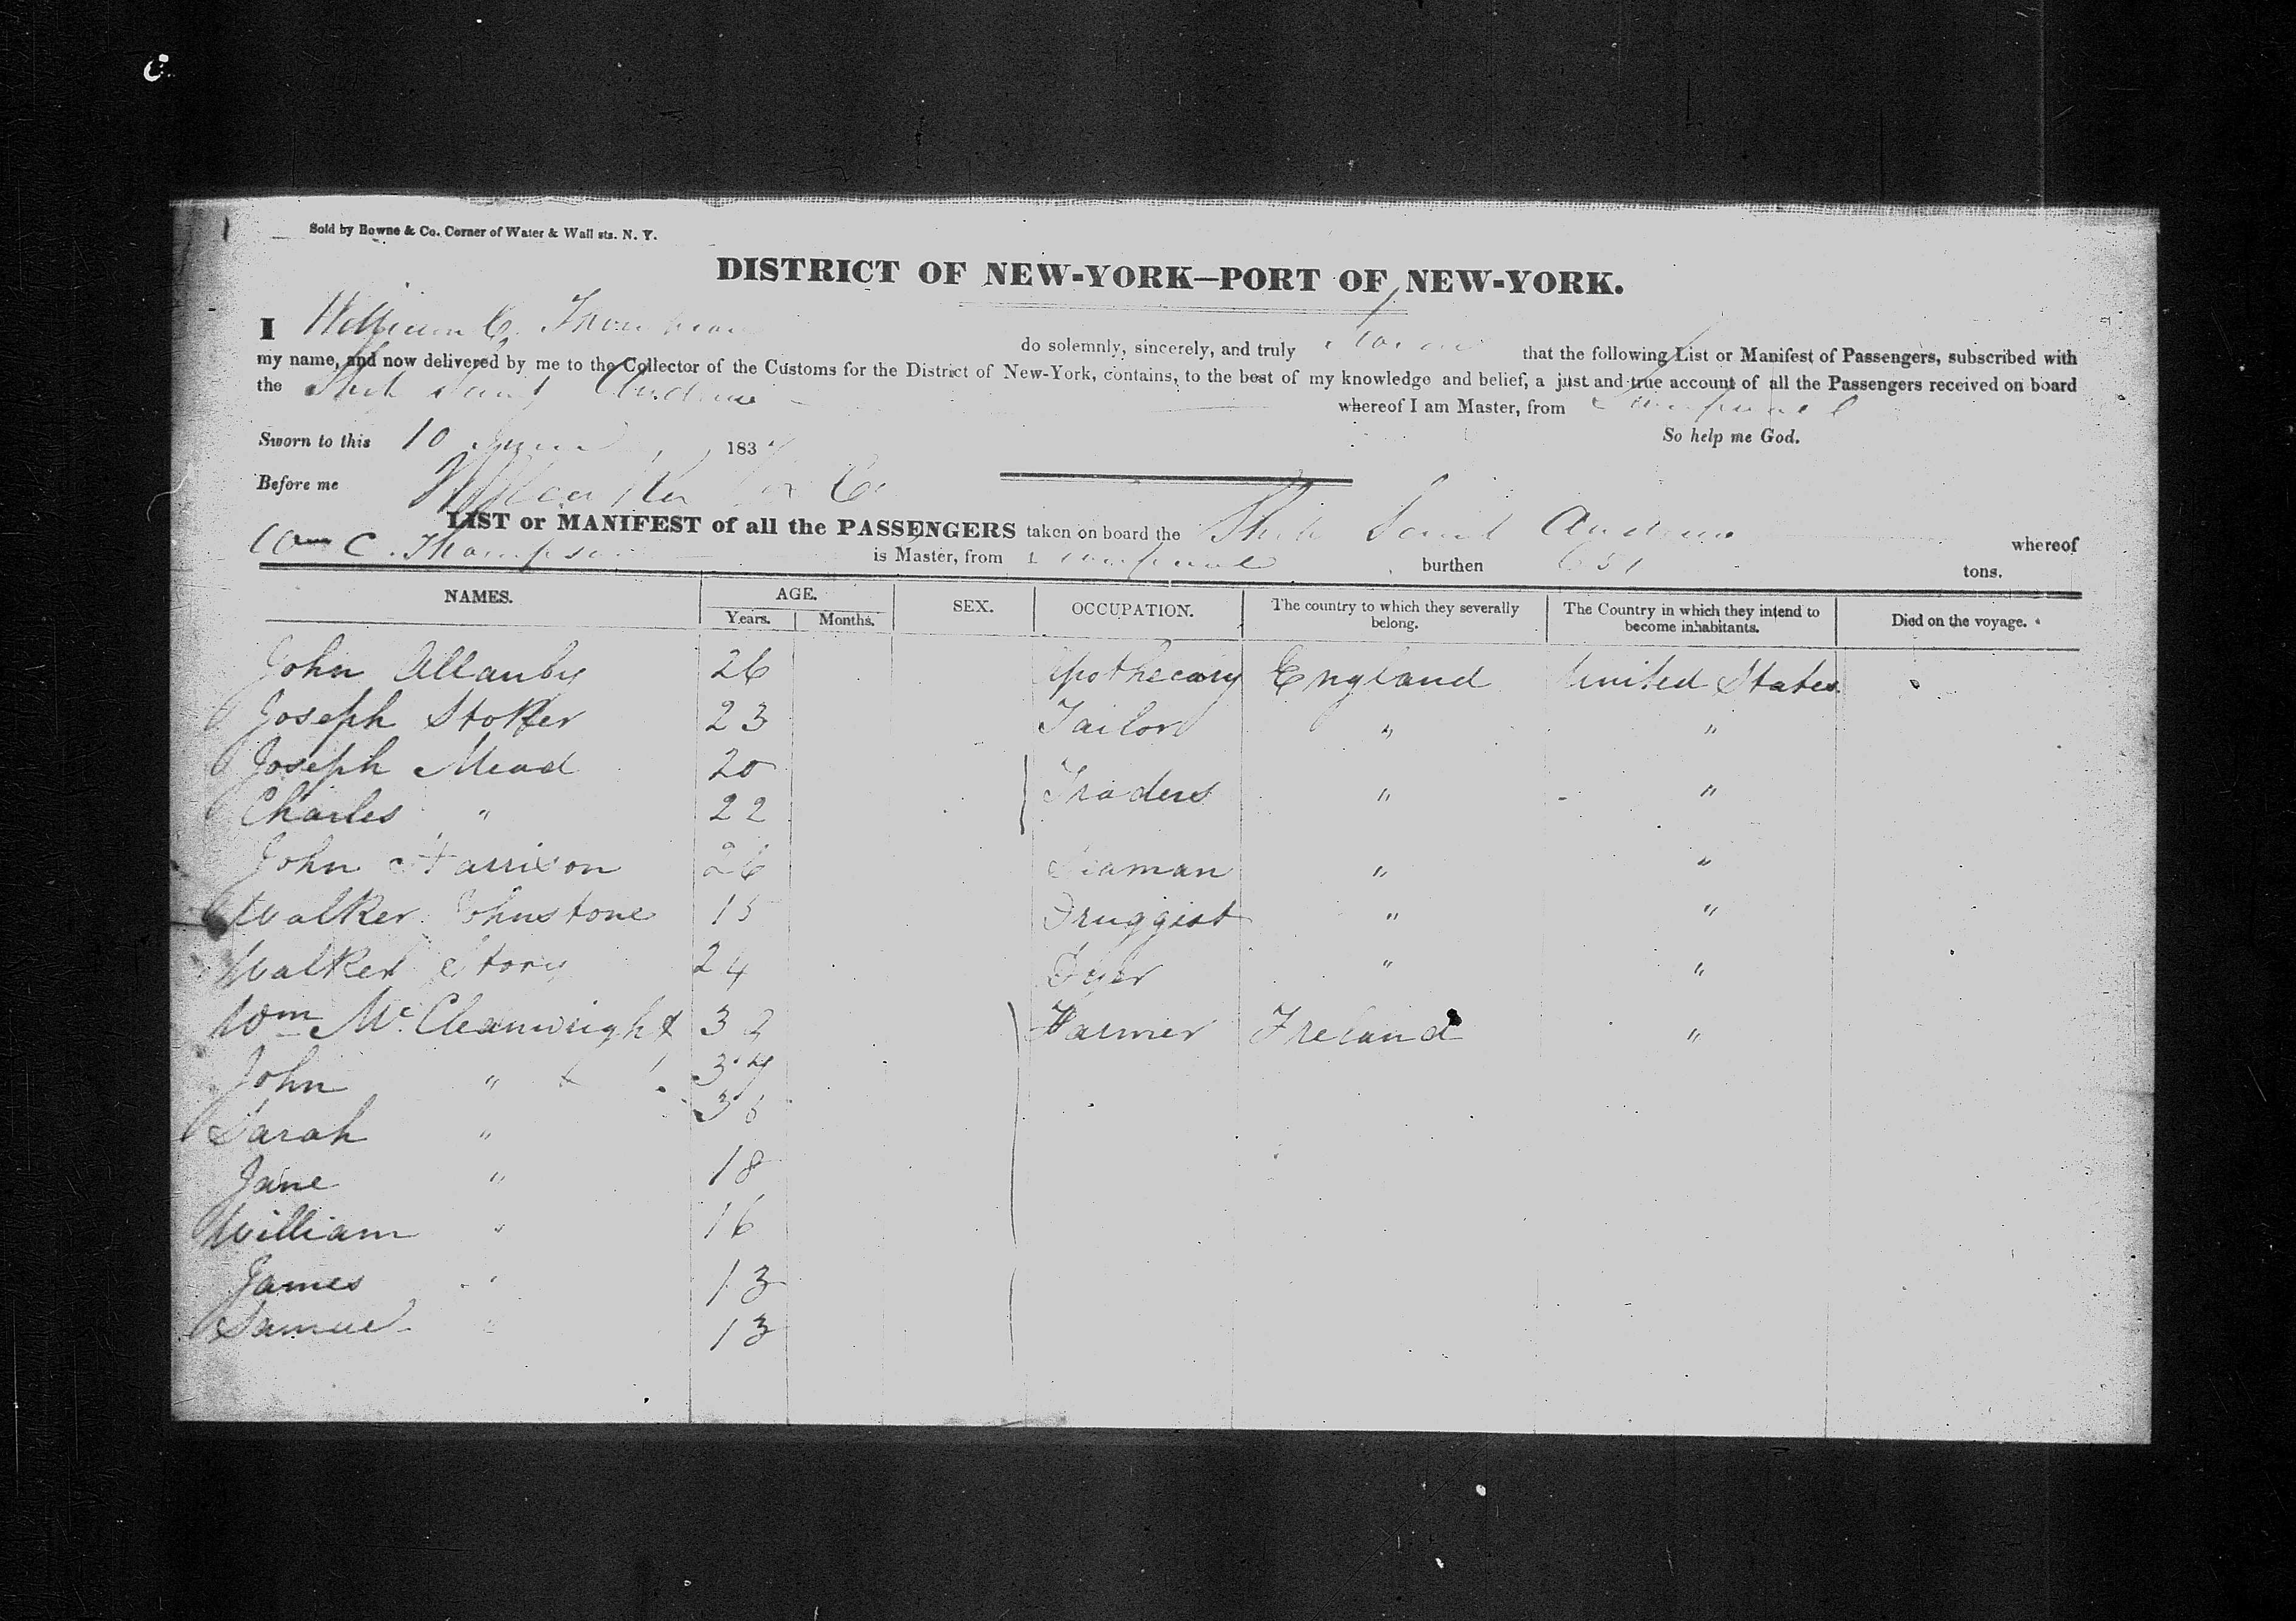 Sold by Bowne & Co. Corner of Water & Wall sts. N. Y.
DISTRICT OF NEW-YORK—PORT OF NEW-YORK.
I William C. Thompson do solemnly, sincerely, and truly swear that the following List or Manifest of Passengers, subscribed with
my name, and now delivered by me to the Collector of the Customs for the District of New-York, contains, to the best of my knowledge and belief, a just and true account of all the Passengers received on board
the Ship Saint Andrew whereof I am Master, from Liverpool
Sworn to this 10 June 183 So help me God.
Before me
LIST or MANIFEST of all the PASSENGERS taken on board the Ship Saint Andrew whereof
Wm C. Thompson is Master, from Liverpool burthen 651 tons.
NAMES. AGE. SEX. OCCUPATION. The country to which they severally belong. The Country in which they intend to become inhabitants. Died on the voyage.
Years. Months.
John Allanby 26 Apothecary England United States
Joseph Stoker 23 Tailor " "
Joseph Mead 20 Traders " "
Charles " 22
John Harrison 26 Seaman " "
Walker Johnstone 15 Druggist " "
Walker Story 24 Dyer " "
Wm McCleanwright 32 Farmer Ireland "
John " 34
Sarah " 36
Jane " 18
William " 16
James " 13
Samuel " 13